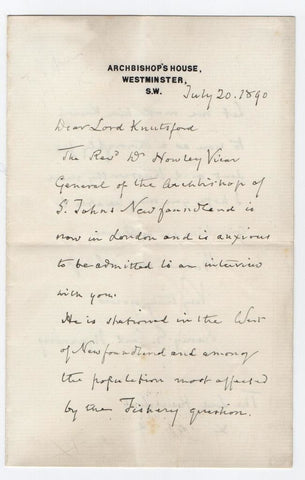 ARCHBISHOP'S HOUSE,
WESTMINSTER,
S.W.
July 20. 1890
Dear Lord Knutsford
The Revd Dr Howley Vicar
General of the Archbishop of
S. Johns Newfoundland is
now in London and is anxious
to be admitted to an interview
with you.
He is stationed in the West
of Newfoundland and among
the population most affected
by the Fishery question.